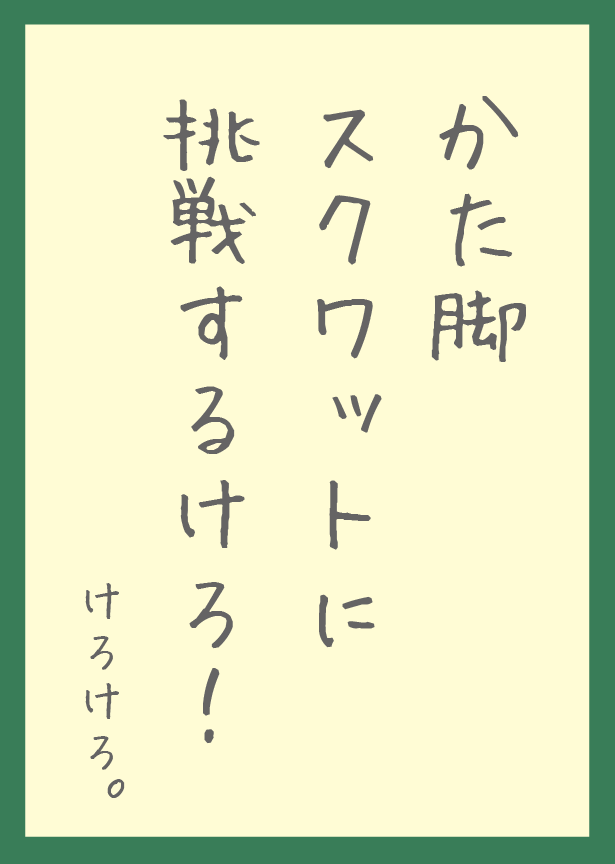 かた脚
スクワットに
挑戦するけろ！
けろけろ。